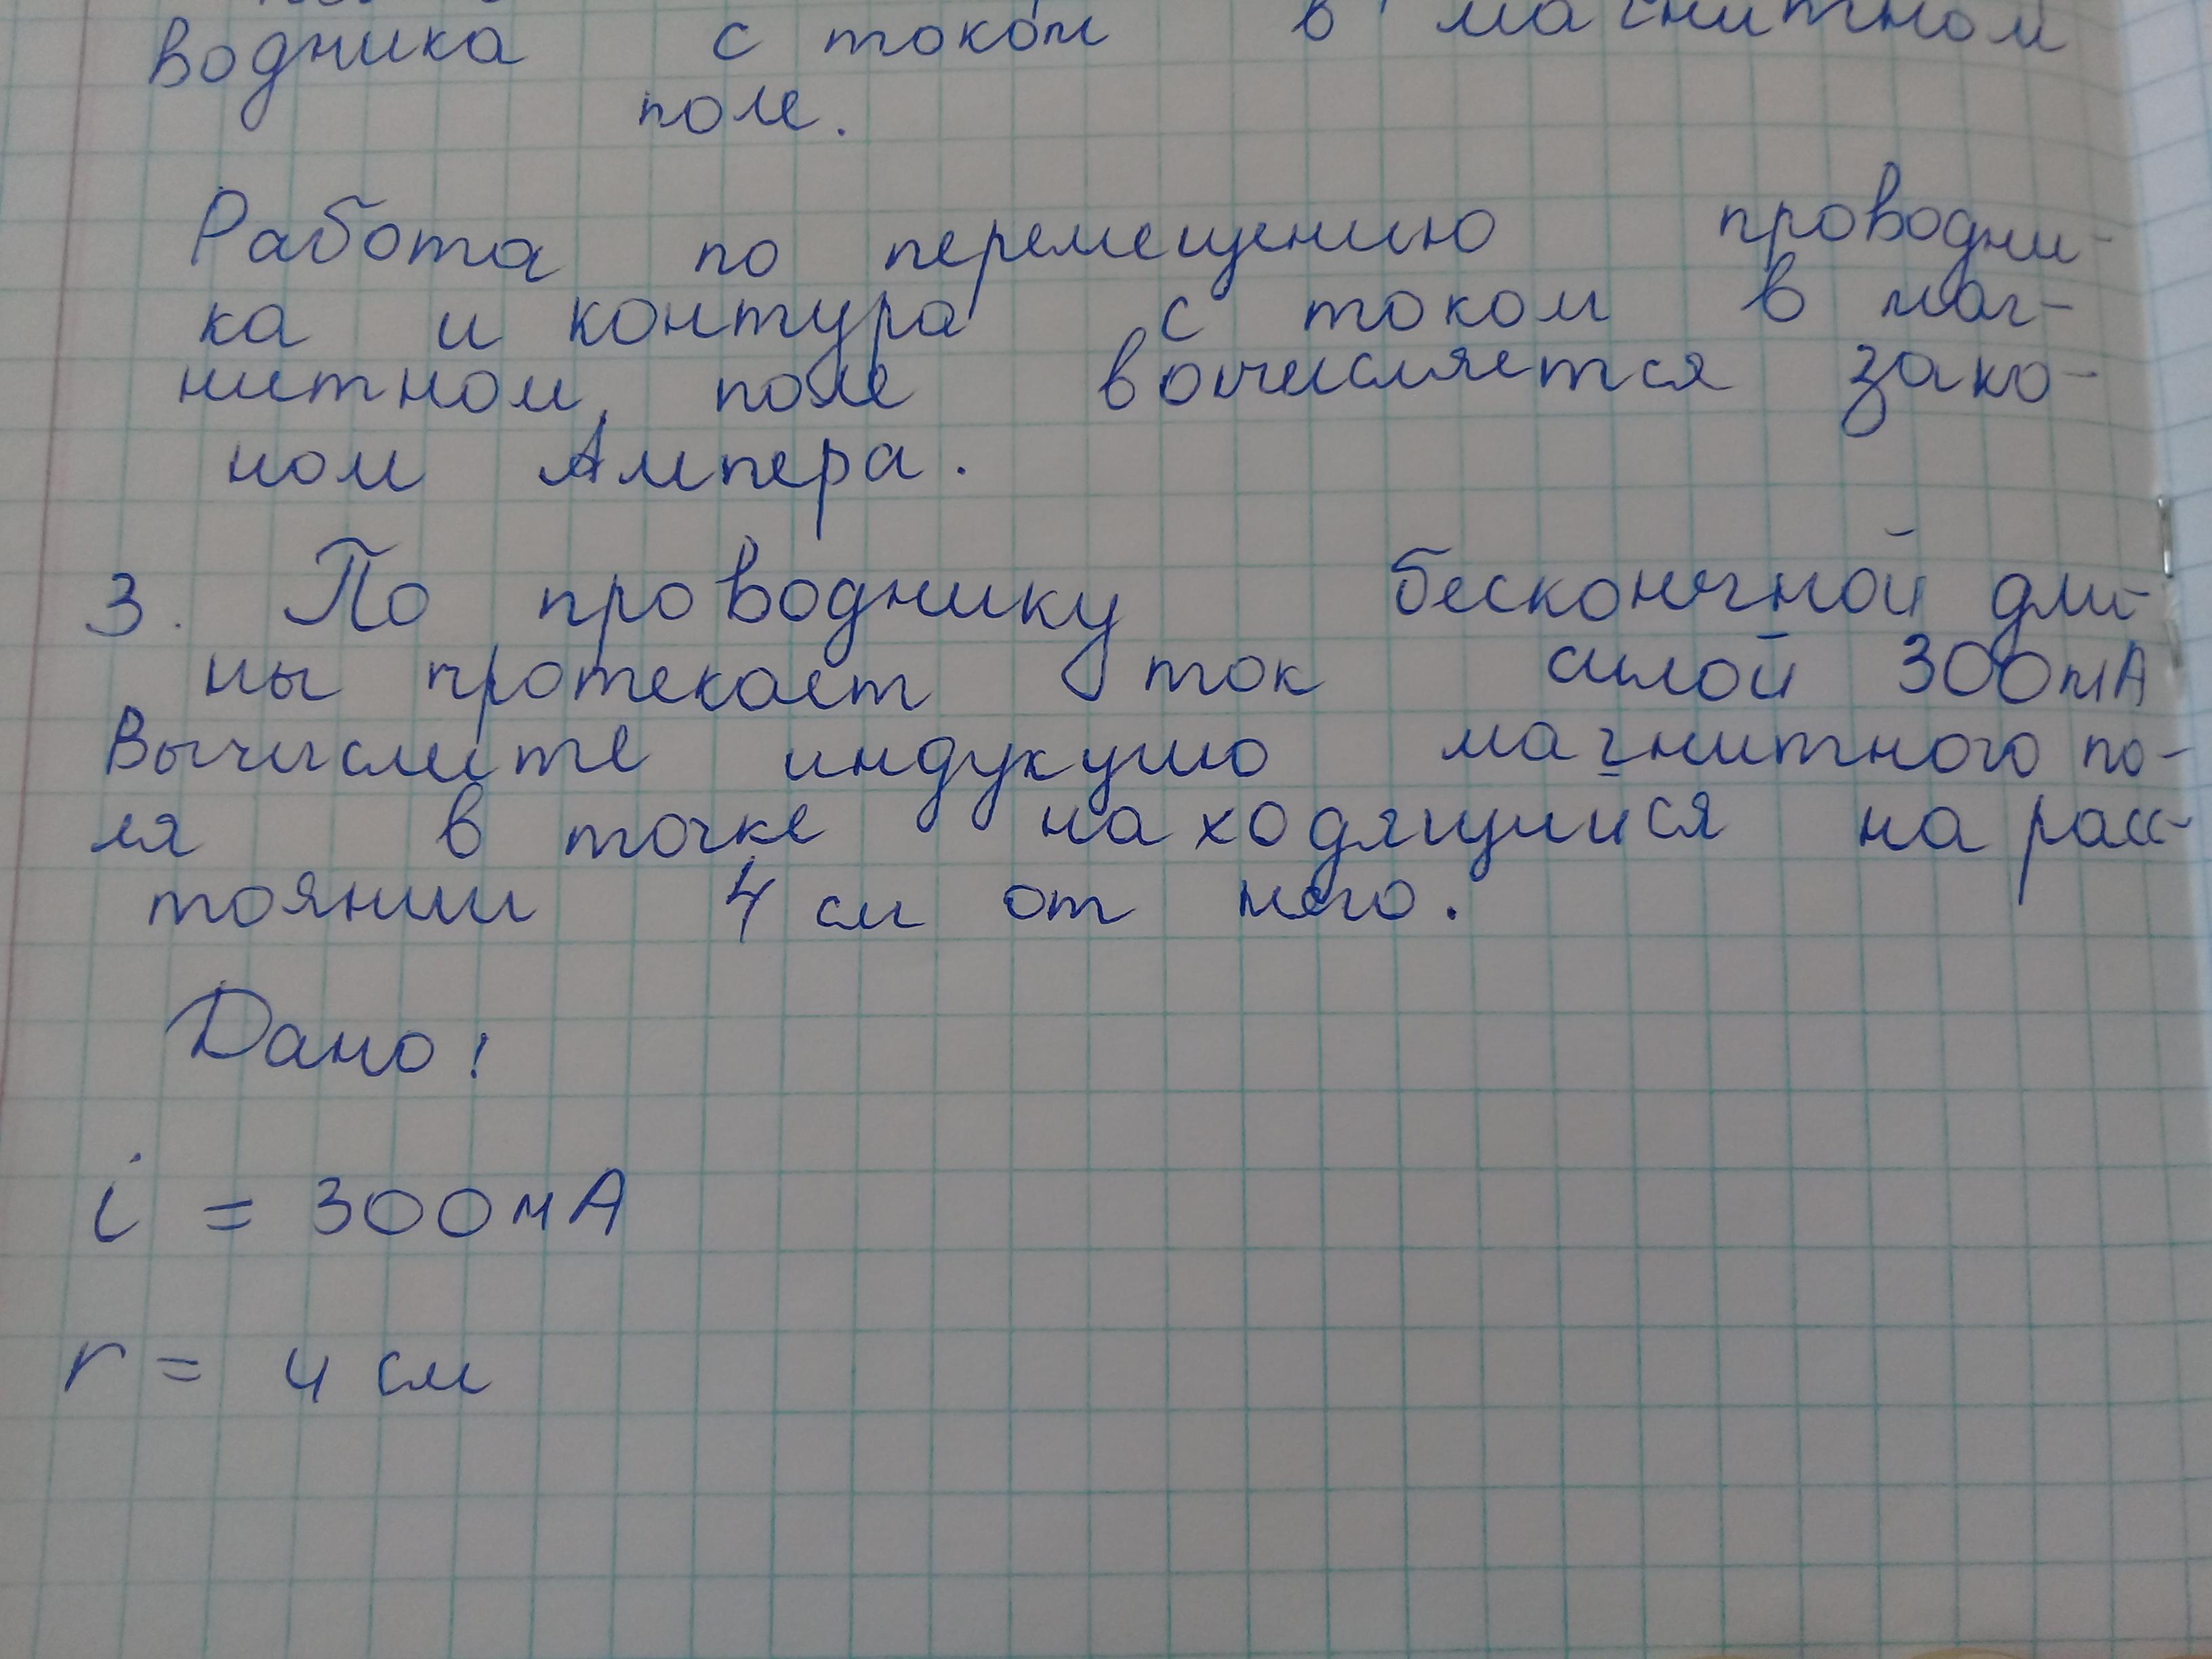 водника с током в магнитном
поле.
Работа по перемещению проводни-
ка и контура с током в маг-
нитном поле вычисляется зако-
ном Ампера.
3. По проводнику бесконечной дли-
ны протекает ток силой 300мА
Вычислите индукцию магнитного по-
ля в точке находящийся на расс-
тоянии 4 см от него.
Дано:
i = 300мА
r = 4 см